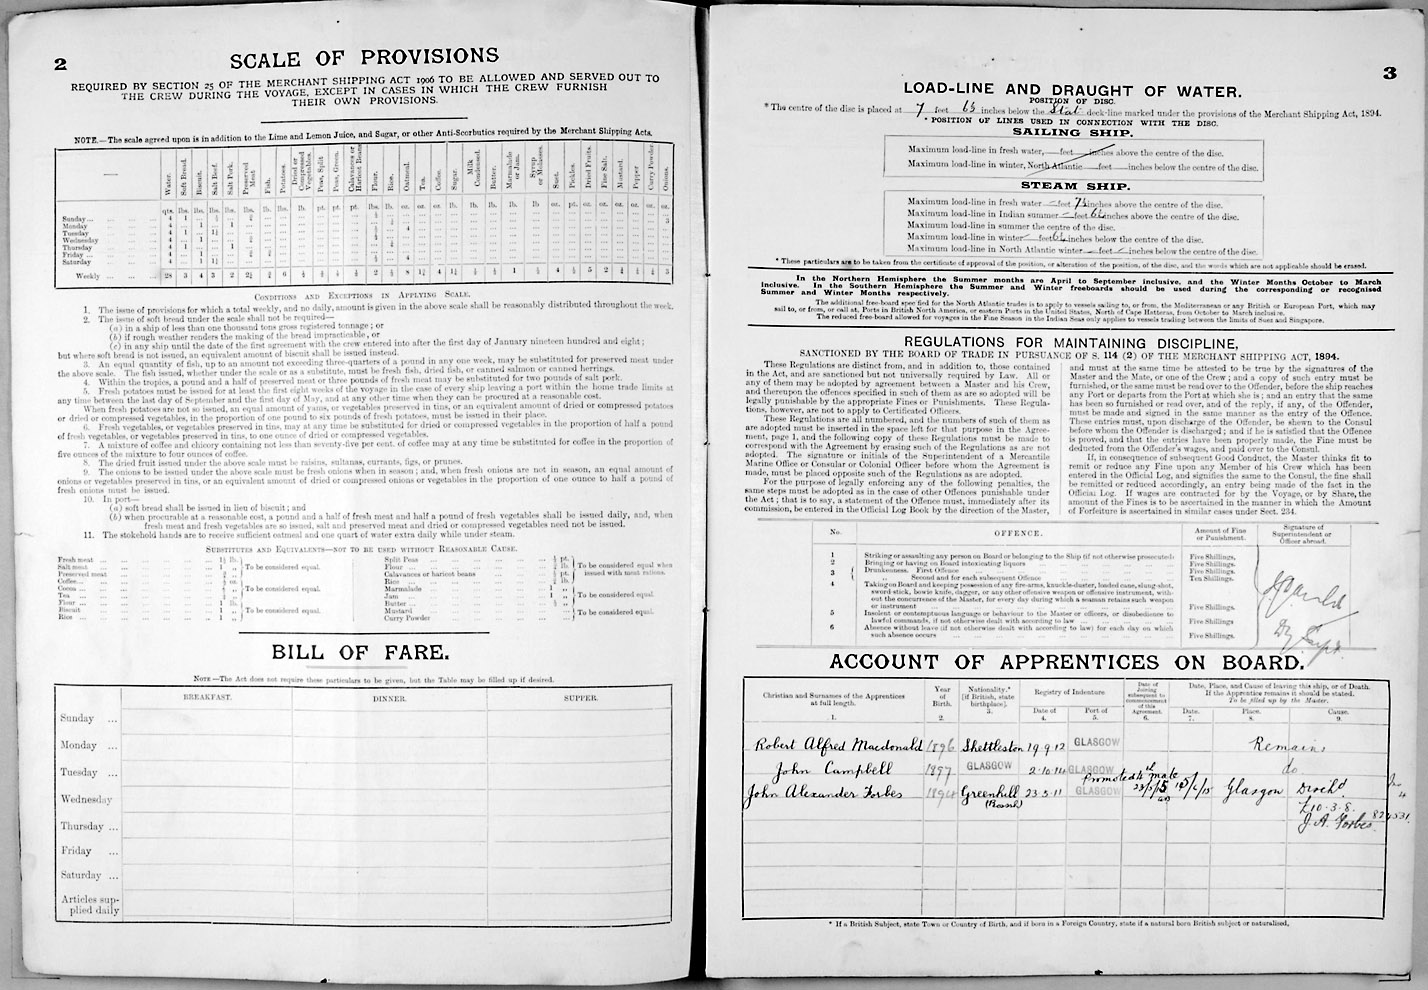 2
SCALE OF PROVISIONS
REQUIRED BY SECTION 25 OF THE MERCHANT SHIPPING ACT 1906 TO BE ALLOWED AND SERVED OUT TO
THE CREW DURING THE VOYAGE, EXCEPT IN CASES IN WHICH THE CREW FURNISH
THEIR OWN PROVISIONS.
NOTE.—The scale agreed upon is in addition to the Lime and Lemon Juice, and Sugar, or other Anti-Scorbutics required by the Merchant Shipping Acts.
Water. Soft Bread. Biscuit. Salt Beef. Salt Pork. Preserved Meat Fish. Potatoes. Dried or Compressed Vegetables. Peas, Split Peas, Green. Calavances or Haricot Beans Flour. Rice. Oatmeal. Tea. Coffee. Sugar. Milk Condensed. Butter. Marmalade or Jam. Syrup or Molasses. Suet. Pickles. Dried Fruits. Fine Salt. Mustard. Pepper Curry Powder Onions.
qts. lbs. lbs. lbs. lbs. lbs. lb. lbs. lb. pt. pt. pt. lbs. lb. oz. oz. oz. lb. lb. lb. lb. lb oz. pt. oz. oz. oz. oz. oz. oz.
Sunday ...
Monday
Tuesday
Wednesday
Thursday
Friday ...
Saturday
Weekly
CONDITIONS AND EXCEPTIONS IN APPLYING SCALE.
1. The issue of provisions for which a total weekly, and no daily, amount is given in the above scale shall be reasonably distributed throughout the week.
2. The issue of soft bread under the scale shall not be required—
(a) in a ship of less than one thousand tons gross registered tonnage; or
(b) if rough weather renders the making of the bread impracticable, or
(c) in any ship until the date of the first agreement with the crew entered into after the first day of January nineteen hundred and eight;
but where soft bread is not issued, an equivalent amount of biscuit shall be issued instead.
3. An equal quantity of fish, up to an amount not exceeding three-quarters of a pound in any one week, may be substituted for preserved meat under
the above scale. The fish issued, whether under the scale or as a substitute, must be fresh fish, dried fish, or canned salmon or canned herrings.
4. Within the tropics, a pound and a half of preserved meat or three pounds of fresh meat may be substituted for two pounds of salt pork.
5. Fresh potatoes must be issued for at least the first eight weeks of the voyage in the case of every ship leaving a port within the home trade limits at
any time between the last day of September and the first day of May, and at any other time when they can be procured at a reasonable cost.
When fresh potatoes are not so issued, an equal amount of yams, or vegetables preserved in tins, or an equivalent amount of dried or compressed potatoes
or dried or compressed vegetables, in the proportion of one pound to six pounds of fresh potatoes, must be issued in their place.
6. Fresh vegetables, or vegetables preserved in tins, may at any time be substituted for dried or compressed vegetables in the proportion of half a pound
of fresh vegetables, or vegetables preserved in tins, to one ounce of dried or compressed vegetables.
7. A mixture of coffee and chicory containing not less than seventy-five per cent. of coffee may at any time be substituted for coffee in the proportion of
five ounces of the mixture to four ounces of coffee.
8. The dried fruit issued under the above scale must be raisins, sultanas, currants, figs, or prunes.
9. The onions to be issued under the above scale must be fresh onions when in season; and, when fresh onions are not in season, an equal amount of
onions or vegetables preserved in tins, or an equivalent amount of dried or compressed onions or vegetables in the proportion of one ounce to half a pound of
fresh onions must be issued.
10. In port—
(a) soft bread shall be issued in lieu of biscuit; and
(b) when procurable at a reasonable cost, a pound and a half of fresh meat and half a pound of fresh vegetables shall be issued daily, and, when
fresh meat and fresh vegetables are so issued, salt and preserved meat and dried or compressed vegetables need not be issued.
11. The stokehold hands are to receive sufficient oatmeal and one quart of water extra daily while under steam.
SUBSTITUTES AND EQUIVALENTS—NOT TO BE USED WITHOUT REASONABLE CAUSE.
Fresh meat
Salt meat
Preserved meat
To be considered equal.
Coffee...
Cocoa
Tea
To be considered equal.
Flour
Biscuit
Rice
To be considered equal.
Split Peas
Flour
Calavances or haricot beans
Rice
To be considered equal when issued with meat rations.
Marmalade
Jam
Butter
To be considered equal.
Mustard
Curry Powder
To be considered equal.
BILL OF FARE.
NOTE—The Act does not require these particulars to be given, but the Table may be filled up if desired.
BREAKFAST. DINNER. SUPPER.
Sunday ...
Monday ...
Tuesday ...
Wednesday
Thursday ...
Friday ...
Saturday ...
Articles sup-
plied daily
3
LOAD-LINE AND DRAUGHT OF WATER.
POSITION OF DISC.
* The centre of the disc is placed at 7 feet 6½ inches below the Stat deck-line marked under the provisions of the Merchant Shipping Act, 1894.
* POSITION OF LINES USED IN CONNECTION WITH THE DISC.
SAILING SHIP.
Maximum load-line in fresh water, — feet — inches above the centre of the disc.
Maximum load-line in winter, North Atlantic — feet — inches below the centre of the disc.
STEAM SHIP.
Maximum load-line in fresh water — feet 7½ inches above the centre of the disc.
Maximum load-line in Indian summer — feet 6½ inches above the centre of the disc.
Maximum load-line in summer the centre of the disc.
Maximum load-line in winter — feet 6½ inches below the centre of the disc.
Maximum load-line in North Atlantic winter — feet — inches below the centre of the disc.
* These particulars are to be taken from the certificate of approval of the position, or alteration of the position, of the disc, and the words which are not applicable should be erased.
In the Northern Hemisphere the Summer months are April to September inclusive, and the Winter Months October to March
inclusive. In the Southern Hemisphere the Summer and Winter freeboards should be used during the corresponding or recognised
Summer and Winter Months respectively.
The additional free-board specified for the North Atlantic trades is to apply to vessels sailing to, or from, the Mediterranean or any British or European Port, which may
sail to, or from, or call at, Ports in British North America, or eastern Ports in the United States, North of Cape Hatteras, from October to March inclusive.
The reduced free-board allowed for voyages in the Fine Season in the Indian Seas only applies to vessels trading between the limits of Suez and Singapore.
REGULATIONS FOR MAINTAINING DISCIPLINE,
SANCTIONED BY THE BOARD OF TRADE IN PURSUANCE OF S. 114 (2) OF THE MERCHANT SHIPPING ACT, 1894.
These Regulations are distinct from, and in addition to, those contained
in the Act, and are sanctioned but not universally required by Law. All or
any of them may be adopted by agreement between a Master and his Crew,
and thereupon the offences specified in such of them as are so adopted will be
legally punishable by the appropriate Fines or Punishments. These Regula-
tions, however, are not to apply to Certificated Officers.
These Regulations are all numbered, and the numbers of such of them as
are adopted must be inserted in the space left for that purpose in the Agree-
ment, page 1, and the following copy of these Regulations must be made to
correspond with the Agreement by erasing such of the Regulations as are not
adopted. The signature or initials of the Superintendent of a Mercantile
Marine Office or Consular or Colonial Officer before whom the Agreement is
made, must be placed opposite such of the Regulations as are adopted.
For the purpose of legally enforcing any of the following penalties, the
same steps must be adopted as in the case of other Offences punishable under
the Act; that is to say, a statement of the Offence must, immediately after its
commission, be entered in the Official Log Book by the direction of the Master,
and must at the same time be attested to be true by the signatures of the
Master and the Mate, or one of the Crew; and a copy of such entry must be
furnished, or the same must be read over to the Offender, before the ship reaches
any Port or departs from the Port at which she is; and an entry that the same
has been so furnished or read over, and of the reply, if any, of the Offender,
must be made and signed in the same manner as the entry of the Offence.
These entries must, upon discharge of the Offender, be shewn to the Consul
before whom the Offender is discharged; and if he is satisfied that the Offence
is proved, and that the entries have been properly made, the Fine must be
deducted from the Offender's wages, and paid over to the Consul.
If, in consequence of subsequent Good Conduct, the Master thinks fit to
remit or reduce any Fine upon any Member of his Crew which has been
entered in the Official Log, and signifies the same to the Consul, the fine shall
be remitted or reduced accordingly, an entry being made of the fact in the
Official Log. If wages are contracted for by the Voyage, or by Share, the
amount of the Fines is to be ascertained in the manner in which the Amount
of Forfeiture is ascertained in similar cases under Sect. 234.
No. OFFENCE. Amount of Fine or Punishment. Signature of Superintendent or Officer abroad.
1 Striking or assaulting any person on Board or belonging to the Ship (if not otherwise prosecuted) Five Shillings.
2 Bringing or having on Board intoxicating liquors Five Shillings.
3 Drunkenness. First Offence Five Shillings.
„ Second and for each subsequent Offence Ten Shillings.
4 Taking on Board and keeping possession of any fire-arms, knuckle-duster, loaded cane, slung-shot,
sword-stick, bowie knife, dagger, or any other offensive weapon or offensive instrument, with-
out the concurrence of the Master, for every day during which a seaman retains such weapon
or instrument Five Shillings.
5 Insolent or contemptuous language or behaviour to the Master or officers, or disobedience to
lawful commands, if not otherwise dealt with according to law Five Shillings.
6 Absence without leave (if not otherwise dealt with according to law) for each day on which
such absence occurs Five Shillings.
Dy Supt.
ACCOUNT OF APPRENTICES ON BOARD.
Christian and Surnames of the Apprentices at full length. Year of Birth. Nationality.* [if British, state birthplace]. Registry of Indenture Date of Joining subsequent to commencement of this Agreement. Date, Place, and Cause of leaving this ship, or of Death.
If the Apprentice remains it should be stated.
To be filled up by the Master.
Date of Port of Date. Place. Cause.
1. 2. 3. 4. 5. 6. 7. 8. 9.
Robert Alfred Macdonald 1896 Shettleston 19.9.12 GLASGOW Remains
John Campbell 1897 GLASGOW 2.10.14 GLASGOW do
promoted to mate
John Alexander Forbes 189 Greenhill 23.5.11 GLASGOW 23/5/15 15/6/15 Glasgow Disch'd
£10.3.8.
J. A. Forbes
* If a British Subject, state Town or Country of Birth, and if born in a Foreign Country, state if a natural born British subject or naturalised.